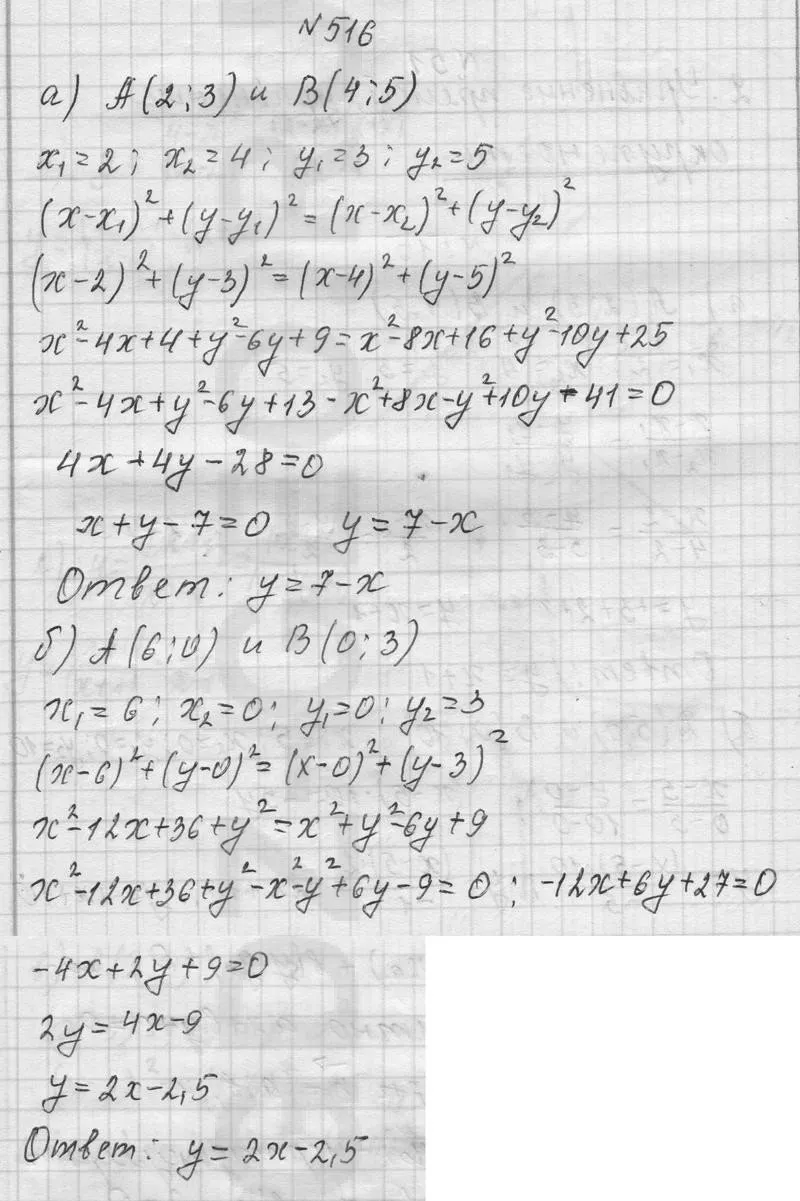 №516
а) A(2;3) и B(4;5)
x₁=2; x₂=4; y₁=3; y₂=5
(x-x₁)²+(y-y₁)²=(x-x₂)²+(y-y₂)²
(x-2)²+(y-3)²=(x-4)²+(y-5)²
x²-4x+4+y²-6y+9=x²-8x+16+y²-10y+25
x²-4x+y²-6y+13-x²+8x-y²+10y-41=0
4x+4y-28=0
x+y-7=0 y=7-x
Ответ: y=7-x
б) A(6;0) и B(0;3)
x₁=6; x₂=0; y₁=0; y₂=3
(x-6)²+(y-0)²=(x-0)²+(y-3)²
x²-12x+36+y²=x²+y²-6y+9
x²-12x+36+y²-x²-y²+6y-9=0; -12x+6y+27=0
-4x+2y+9=0
2y=4x-9
y=2x-2,5
Ответ: y=2x-2,5